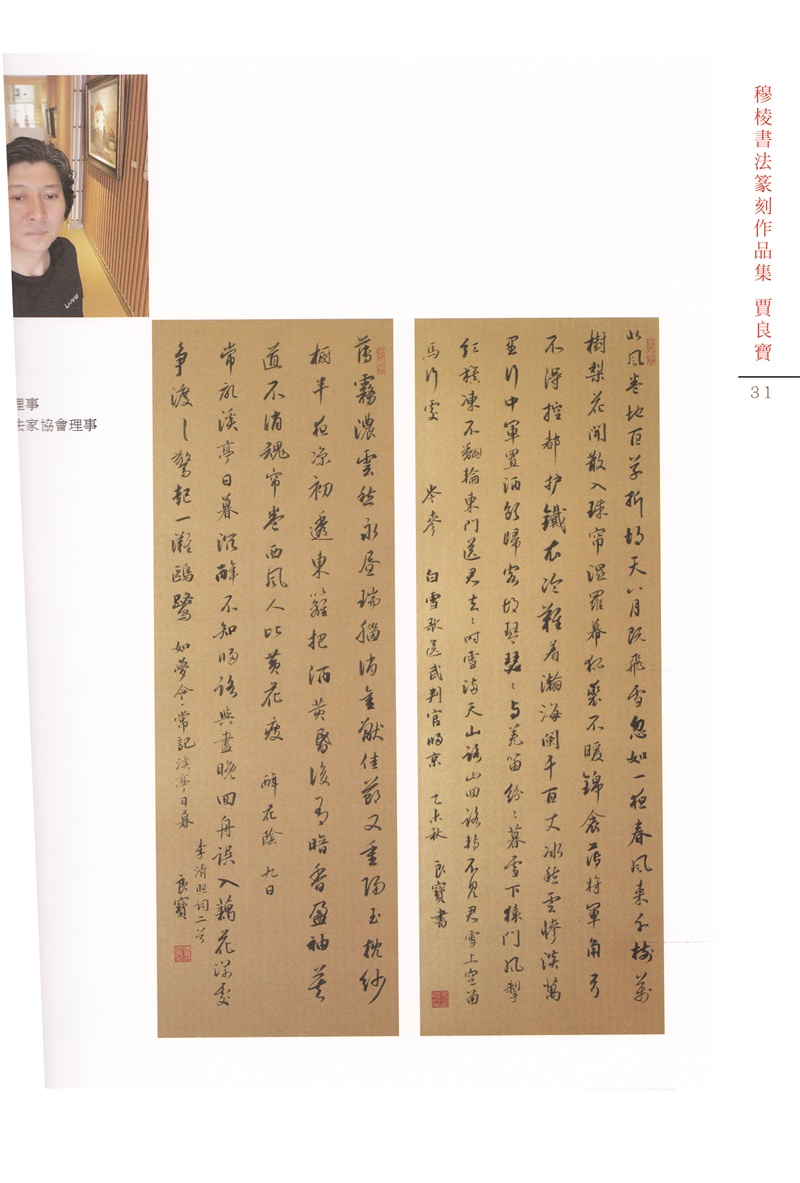 穆棱書法篆刻作品集 賈良寶
31
理事
法家協會理事
北風卷地百草折胡天八月既飛雪忽如一夜春風来千樹萬
樹梨花開散入珠帘濕羅幕狐裘不暖錦衾薄將軍角弓
不得控都护鐵衣冷難着瀚海闌干百丈冰愁雲惨淡萬
里行中軍置酒飲歸客胡琴琵琶与羌笛紛々暮雪下轅門風掣
红旗凍不翻輪東門送君去々时雪满天山路山回路转不見君雪上空留
馬行處 岑參 白雪歌送武判官歸京 乙未秋 良寶書
薄霧濃雲愁永昼瑞腦消金獸佳節又重陽玉枕纱
橱半夜凉初透東籬把酒黄昏後有暗香盈袖莫
道不消魂帘卷西風人比黄花瘦 醉花陰 九日
常記溪亭日暮沉醉不知歸路興盡晚回舟误入藕花深處
争渡々驚起一灘鷗鹭 如夢令·常記溪亭日暮
李清照词二首
良寶